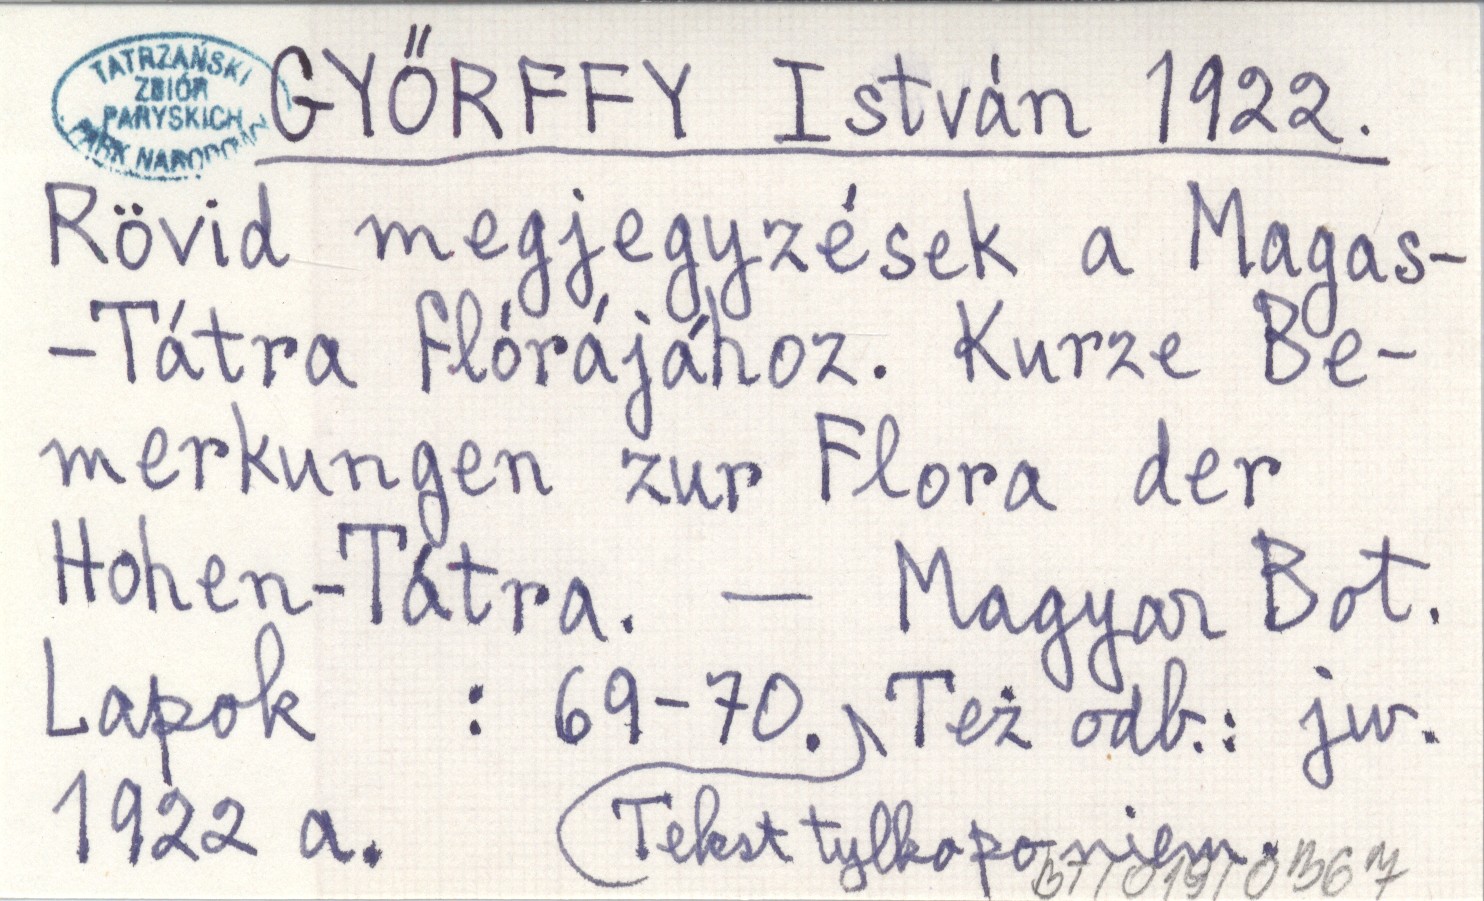 TATRZAŃSKI
ZBIÓR
PARYSKICH
PARK NARODOWY
GYŐRFFY István 1922.
Rövid megjegyzések a Magas-
-Tátra flórájához. Kurze Be-
merkungen zur Flora der
Hohen-Tátra. — Magyar Bot.
Lapok : 69-70. Też odb.: jw.
1922 a. Tekst tylko po niem.